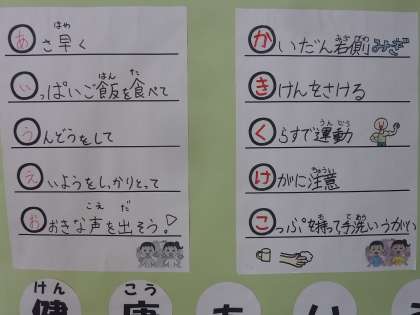 はや
あさ早く
はん た
いっぱいご飯を食べて
うんどうをして
えいようをしっかりとって
こえ だ
おおきな声を出そう!
かいだん右側
きけんをさける
うんどう
くらすで運動
ちゅうい
けがに注意
こっぷを持って手洗いうがい
けん こう
健康